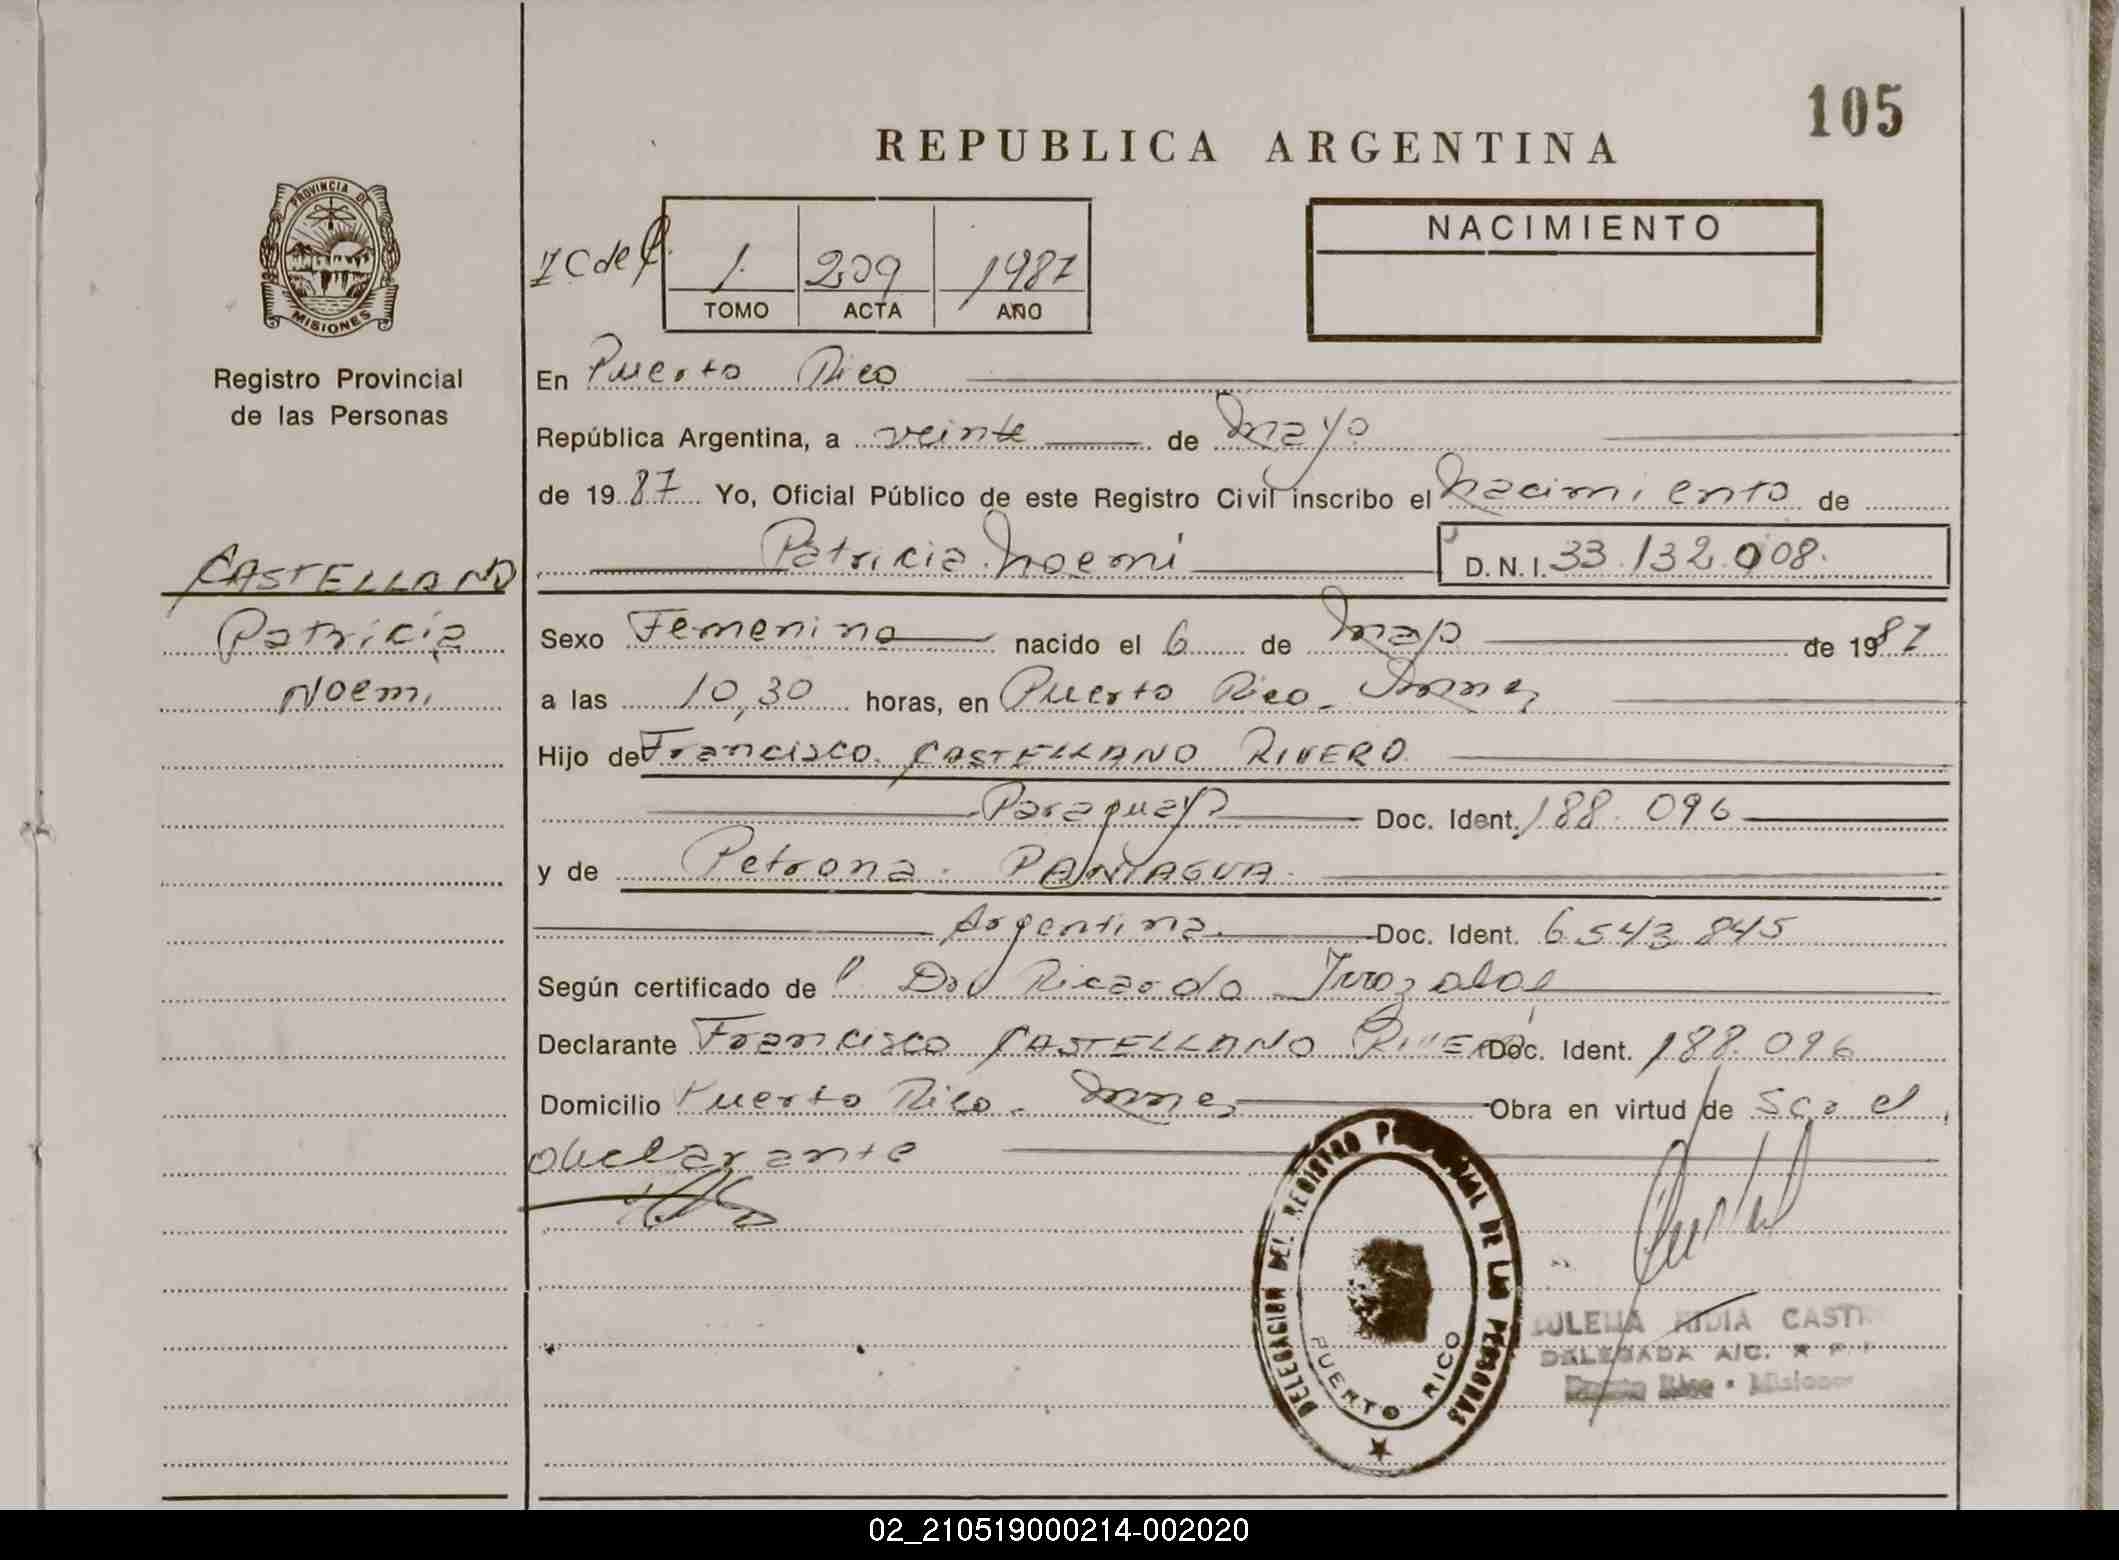 105
REPUBLICA ARGENTINA
PROVINCIA DE
MISIONES
Registro Provincial
de las Personas
1 209 1987
TOMO ACTA AÑO
NACIMIENTO
En Puerto Rico
República Argentina, a veinte de mayo
de 1987 Yo, Oficial Público de este Registro Civil inscribo el nacimiento de
Patricia Noemi D.N.I. 33.132.008.
CASTELLANO
Patricia
Noemi
Sexo Femenino nacido el 6 de mayo de 1987
a las 10,30 horas, en Puerto Rico - Mnes
Hijo de Francisco CASTELLANO RIVERO
Paraguayo Doc. Ident. 188.096
y de Petrona PANIAGUA
Argentina Doc. Ident. 6543845
Según certificado de Dr Ricardo
Declarante Francisco CASTELLANO RIVERO Doc. Ident. 188.096
Domicilio Puerto Rico - Mnes Obra en virtud de ser el
declarante
DELEGACION DEL REGISTRO PROVINCIAL DE LAS PERSONAS
PUERTO RICO
CAST
DELEGADA A/C. R P
Puerto Rico - Misiones
02_210519000214-002020